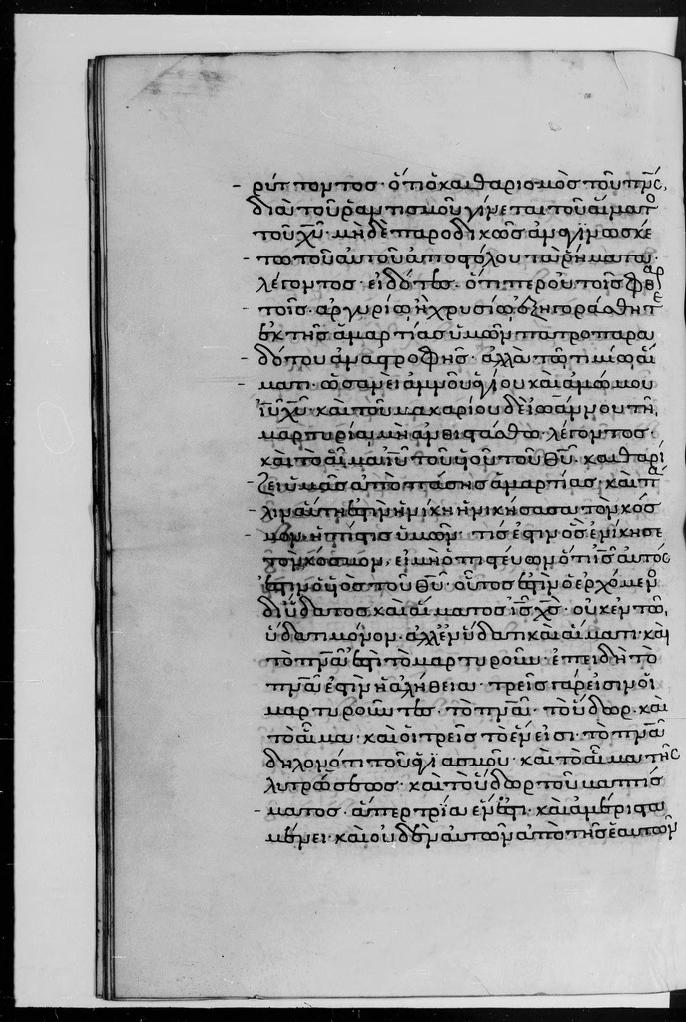 ρύττοντος· ὅτι ὁ καθαρισμὸς τοῦ πν̅ς,
διὰ τοῦ ῥαντισμοῦ γίνεται τοῦ αἵματο
τοῦ χυ̅· μὴδὲ παροδικῶς ἀναγινωσκέ
τω τοῦ αὐτοῦ ἀποστόλου τὰ ῥήματα·
λέγοντος· εἰδότες· ὅτιπερ οὐ τοῖς φθαρ
τοῖς· ἀργυρίω ἢ χρυσίω ἐξηγοράσθητε
ἐκ τῆς ἁμαρτίας ὑμῶν πατροπαρα
δότου ἀναστροφῆς· ἀλλὰ τῶ τιμίω αἵ
ματι· ὡσανεὶ ἀμνοῦ ἁγίου καὶ ἀμώμου
ιυ̅ χυ̅· καὶ τοῦ μακαρίου δὲ ἰωάννου τῆ
μαρτυρία, μὴ ἀνθιστάσθω· λέγοντος·
καὶ τὸ αἷμα ιυ̅ τοῦ υἱοῦ τοῦ θυ̅· καθαρί
ζει ὑμᾶς ἀπὸ πάσης ἁμαρτίας· καὶ πά
λιν αὕτη ἐστὶν ἡ νίκη ἡ νικήσασα τὸν κόσ
μον, ἡ πίστις ὑμῶν· τίς ἐστιν ὃς ἐνίκησε
τὸν κόσμον, εἰ μὴ ὅτι πιστεύων ὅτι ις̅ αὐτός
ἐστιν ὁ υἱὸς τοῦ θυ̅· οὗτος ἐστιν ὁ ἐρχόμενο
δι ὕδατος καὶ αἵματος ις̅ χς̅· οὐκ ἐν τῶ
ὕδατι μόνον· ἀλλ ἐν ὕδατι καὶ αἵματι· καὶ
τὸ πνα̅ ἐστὶ τὸ μαρτυροῦν· ἐπειδὴ τὸ
πνα̅ ἐστὶν ἡ ἀλήθεια· τρεῖς γάρ εἰσιν οἱ
μαρτυροῦντες· τὸ πνα̅· τὸ ὕδωρ· καὶ
τὸ αἷμα· καὶ οἱ τρεῖς τὸ ἕν εἰσι· τὸ πνα̅
δηλονότι τοῦ ἁγιασμοῦ· καὶ τὸ αἷμα τῆς
λυτρώσεως· καὶ τὸ ὕδωρ τοῦ βαπτίσ
ματος· ἅπερ τρία ἕν ἐστι· καὶ ἀμέριστα
μένει· καὶ οὐδὲν αὐτῶν ἀπὸ τῆς ἑαυτῶν